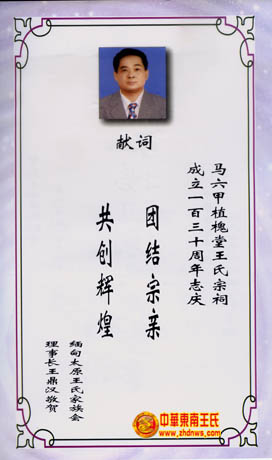 献词
马六甲植槐堂王氏宗祠
成立一百三十周年志庆
团结宗亲
共创辉煌
缅甸太原王氏家族会
理事长王鼎汉敬贺
中華東南王氏
www.zhdnws.com